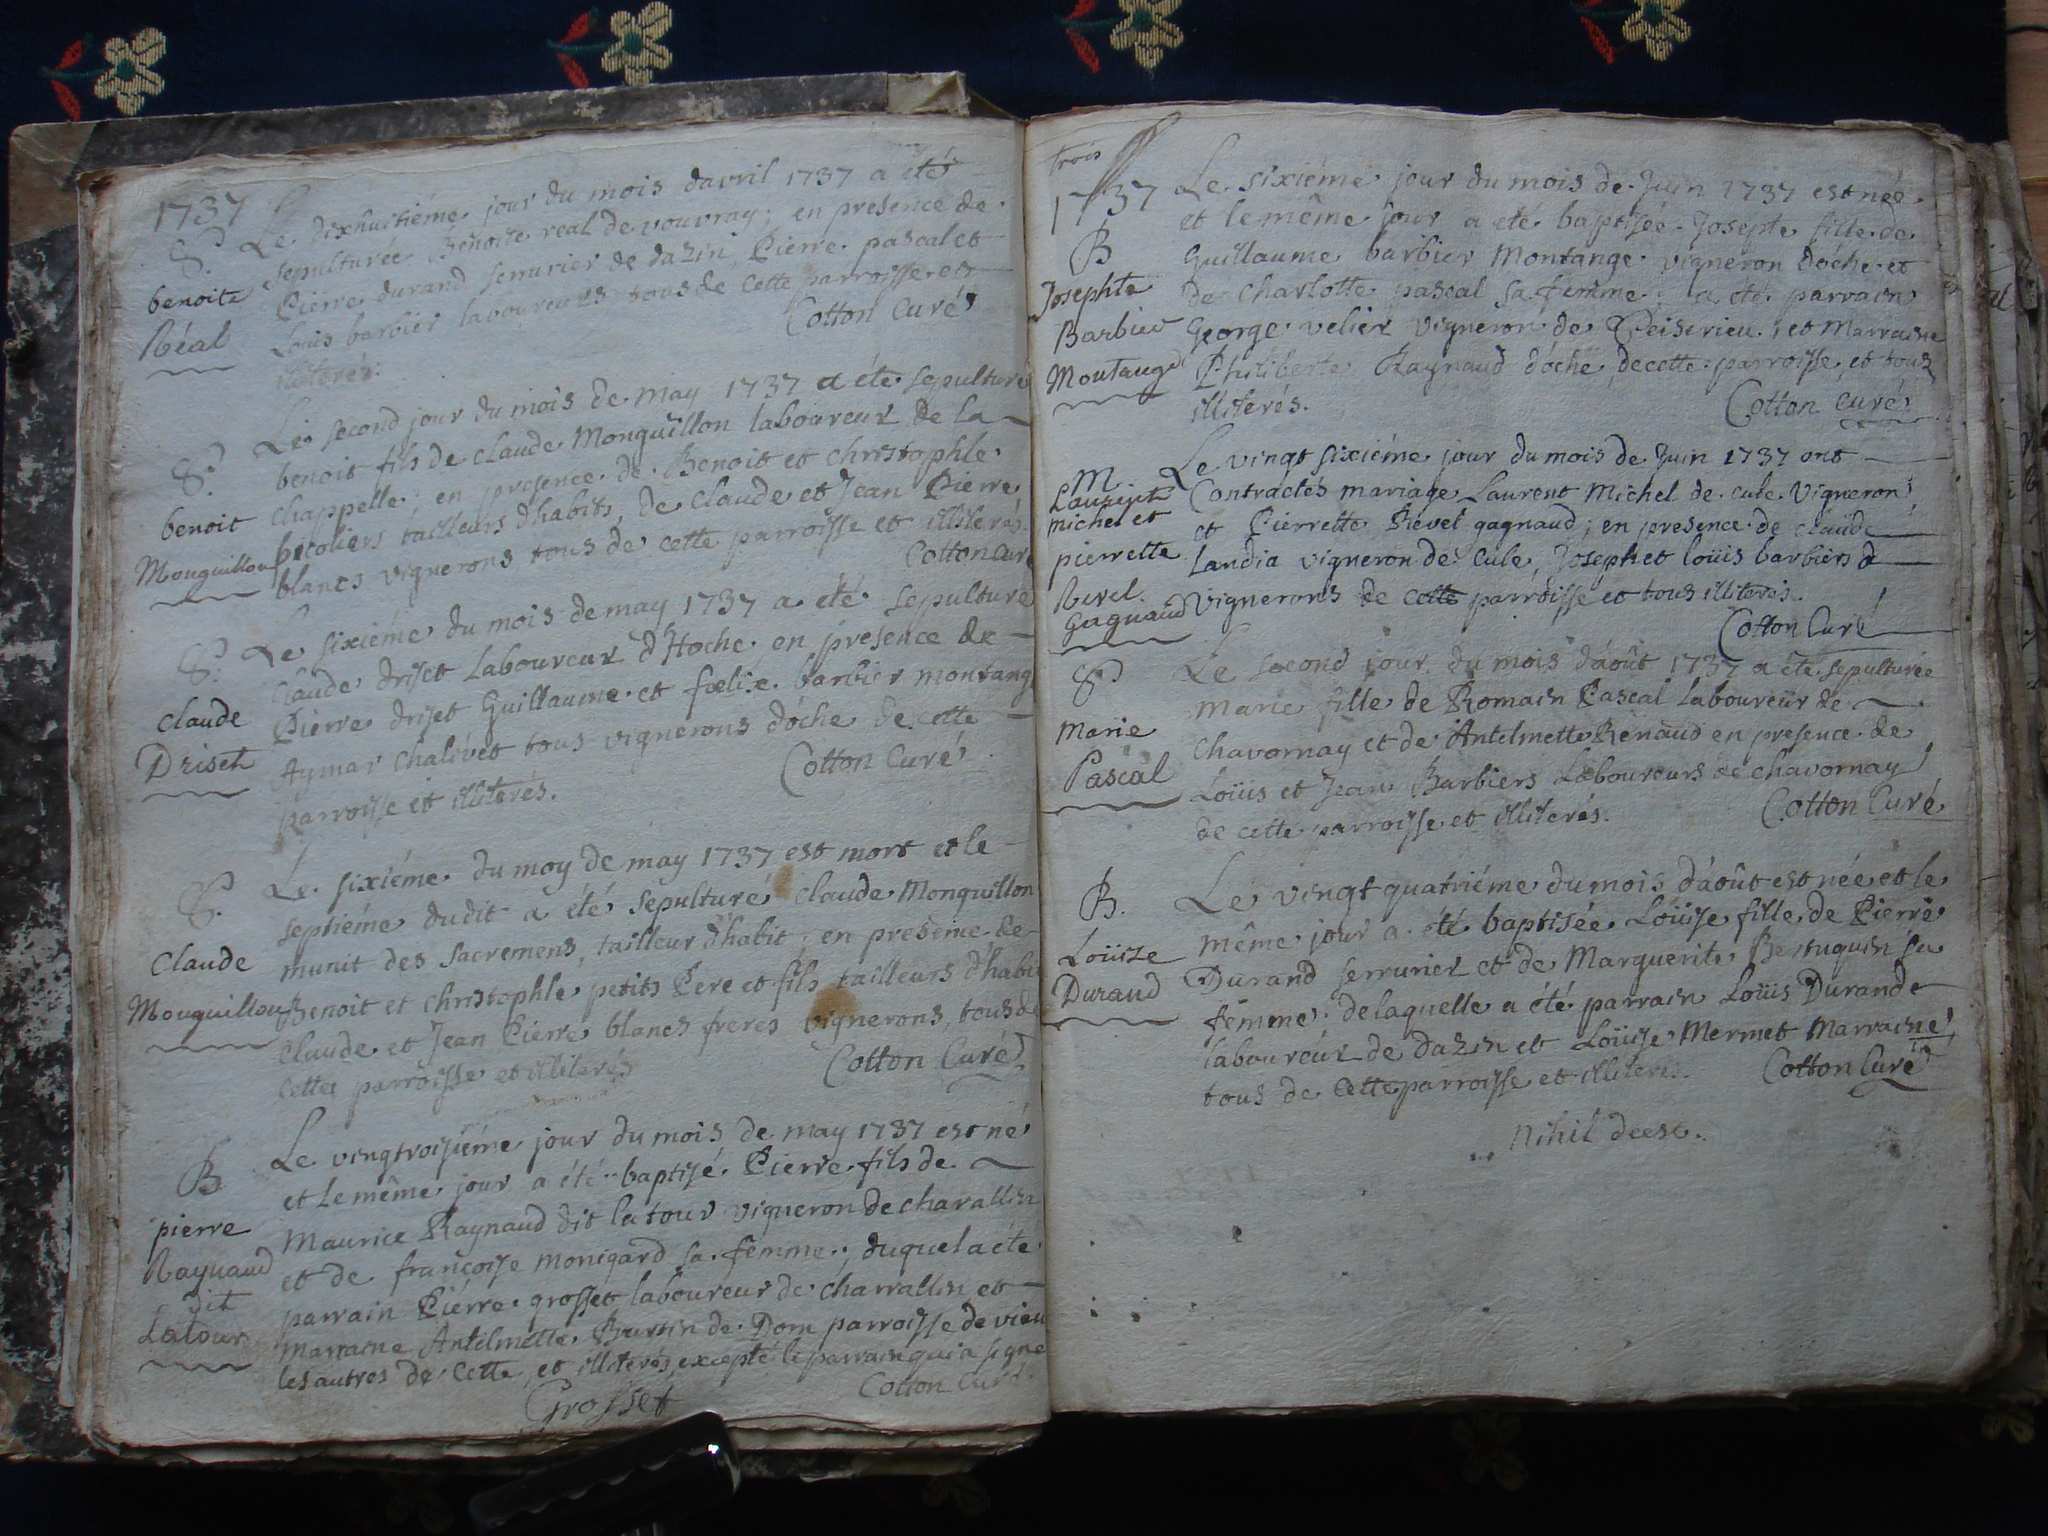 1737
Le dixhuitiéme jour du mois davril 1737 a été
S.
sepulturée Benoite real de vouvray; en presence de
benoite
Pierre durand serrurier de dazin, Pierre pascal et
Réal
Louis barbier laboureurs tous de cette parroisse et
illiterés. Cotton Curé
Le second jour du mois de may 1737 a été sepulturé
S.
benoit fils de claude Monguillon laboureur de la
benoit
chappelle; en presence de Benoit et christophle
Monguillon
tailleurs dhabits, de claude et Jean Pierre
blancs vignerons tous de cette parroisse et illiterés.
Cotton Curé
S.
Le sixiéme du mois de may 1737 a été sepulturé
Claude
claude driset Laboureur d'hoche en presence de
Driseh
Pierre driset Guillaume et foelix barbier montang
Aymar Chalivet tous vignerons dôche de cette
parroisse et illiterés. Cotton Curé
S.
Le sixiéme du moy de may 1737 est mort et le
septiéme dudit a été sepulturé claude Monguillon
Claude
munit des sacremens, tailleur dhabit; en presence de
Monguillon
Benoit et christophle petits Pere et fils tailleurs dhabit
claude et Jean Pierre blancs freres vignerons, tous de
cette parroisse et illiterés Cotton Curé
B
Le vingtroisiéme jour du mois de may 1737 est né
et le même jour a été baptisé Pierre fils de
pierre
Maurice Raynaud dit la tour vigneron de charallin
Raynaud
et de françoise monigard sa femme; duquel a été
dit
parrain Piérre grosset laboureur de charrallin et
Latour
marraine Antelmette Burtin de Dom parroisse de vieu
les autres de cette et illiterés, excepté le parrain qui a signé
Grosset Cotton Curé
trois
1737
Le sixiéme jour du mois de Juin 1737 est née
et le même jour a eté baptisée Josepte fille de
B
Guillaume barbier Montange vigneron dôche et
Josephte
de Charlotte pascal sa femme; a eté parrain
Barbier
George velier vigneron de Ceiserieu; et Marraine
Montange
Philiberte Raynaud dôche, de cette parroisse, et tous
illiterés. Cotton curé
M
Le vingt sixiéme jour du mois de Juin 1737 ont
Laurent
Contractés mariage Laurent Michel de cule vigneron
michel et
et Pierrette Revel gagnaud; en presence de claude
pierrette
Landia vigneron de Cule, Joseph et loüis barbiers
Revel
Vignerons de cette parroisse et tous illiterés.
Gagnaud
Cotton Curé
S
Le second jour du mois dâoût 1737 a été sepulturée
Marie fille de Romain Pascal Laboureur de
Marie
chavornay et de Antelmette Renaud en presence de
Pascal
Loüis et Jean Barbiers Laboureurs de chavornay
de cette parroisse et illiterés. Cotton Curé
B.
Le vingt quatriéme du mois dâoût est née et le
même jour a été baptisée Loüise fille de Pierre
Loüise
Durand serrurier et de Marguerite Bertuquin sa
Durand
femme; de laquelle a été parrain Loüis Durand
laboureur de dazin et Loüise Mermet Marraine
tous de cette parroisse et illiterés. Cotton Curé
Nihil deest.